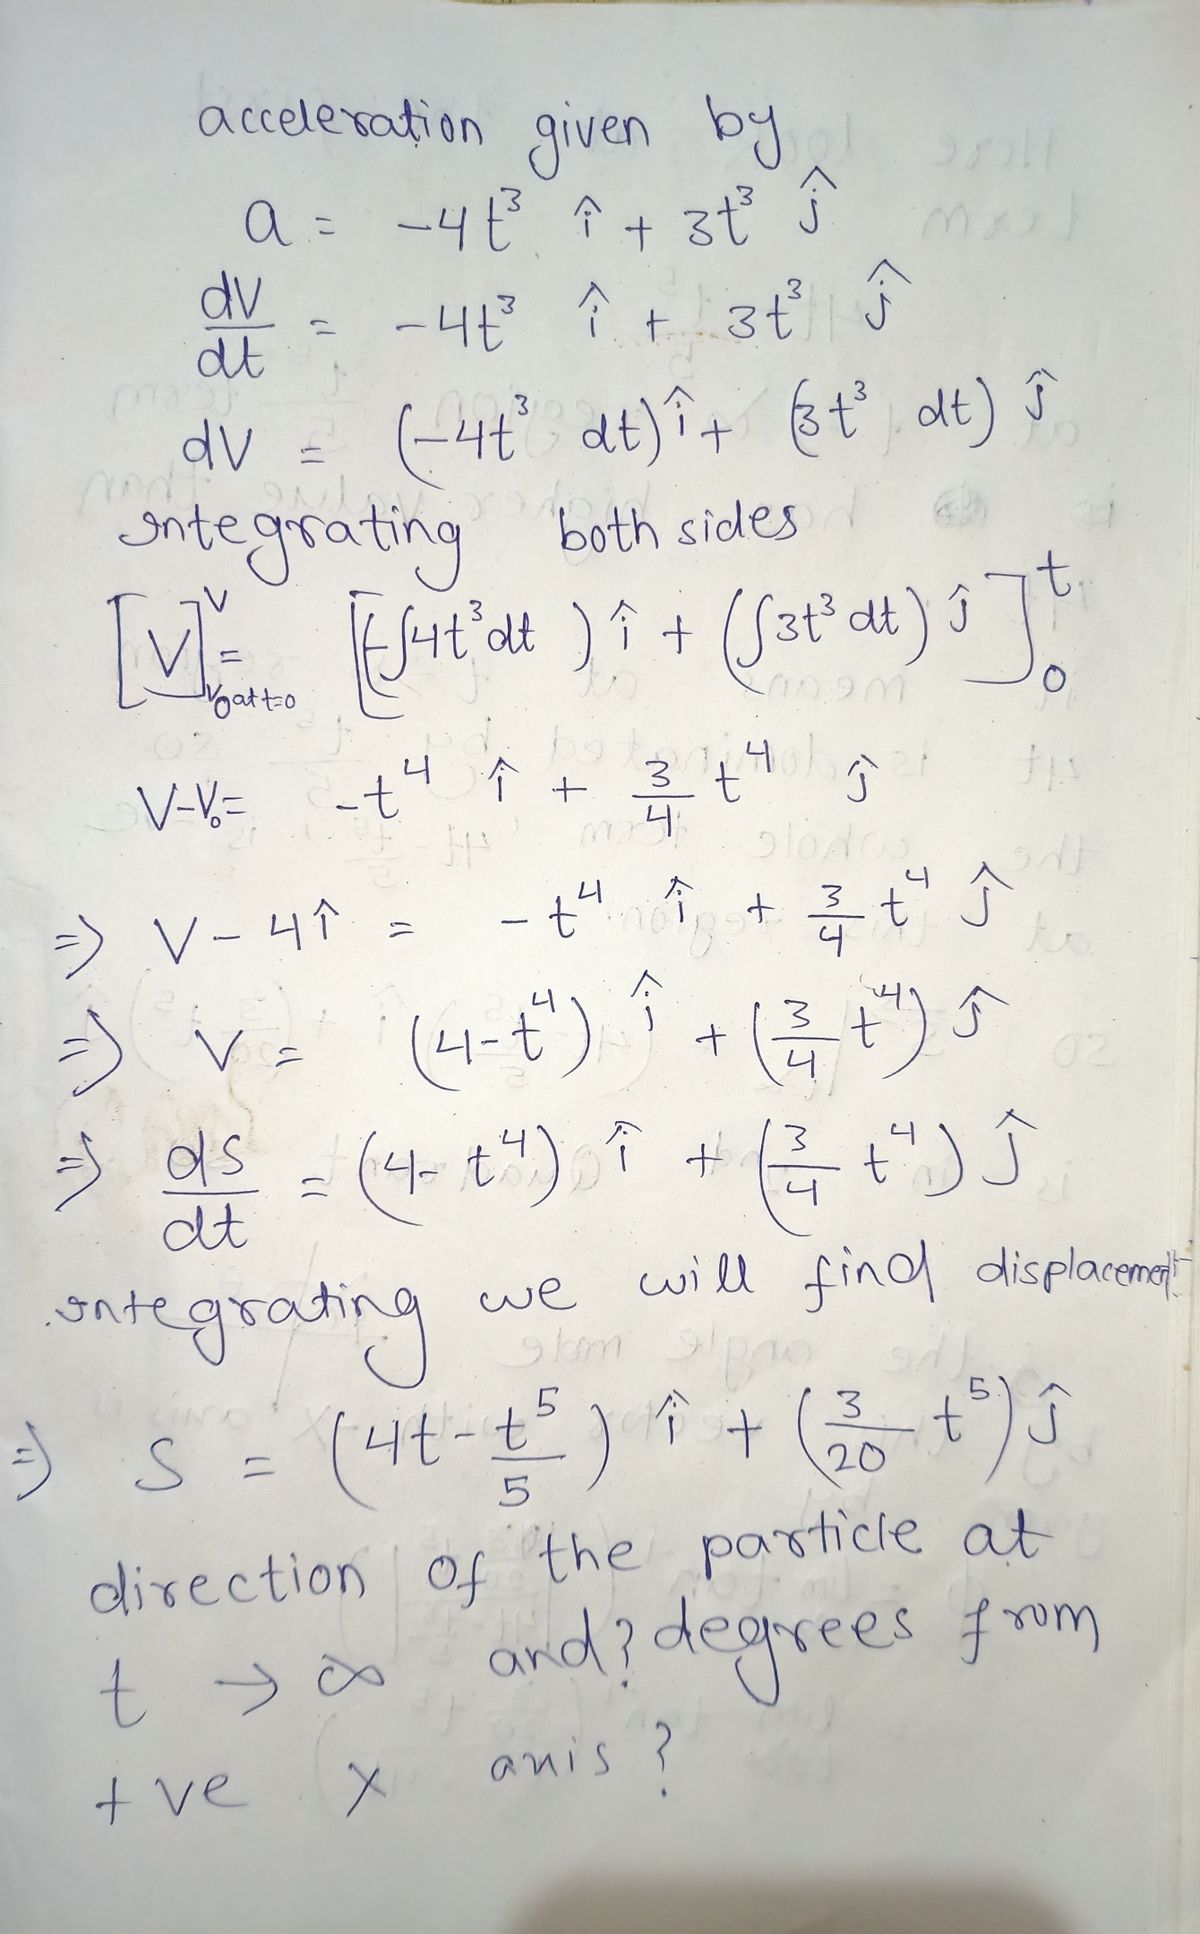 acceleration given by
a = -4t³ î + 3t³ ĵ
dV/dt = -4t³ î + 3t³ ĵ
dV = (-4t³ dt) î + (3t³ dt) ĵ
Integrating both sides
[V]^V_{V₀ at t=0} = [(-∫4t³dt) î + (∫3t³ dt) ĵ]^t_0
V-V₀ = -t⁴ î + 3/4 t⁴ ĵ
=> V - 4î = -t⁴ î + 3/4 t⁴ ĵ
=> V = (4-t⁴) î + (3/4 t⁴) ĵ
=> ds/dt = (4-t⁴) î + (3/4 t⁴) ĵ
integrating we will find displacement
=> S = (4t - t⁵/5) î + (3/20 t⁵) ĵ
direction of the particle at
t → ∞ and? degrees from
+ve x axis?